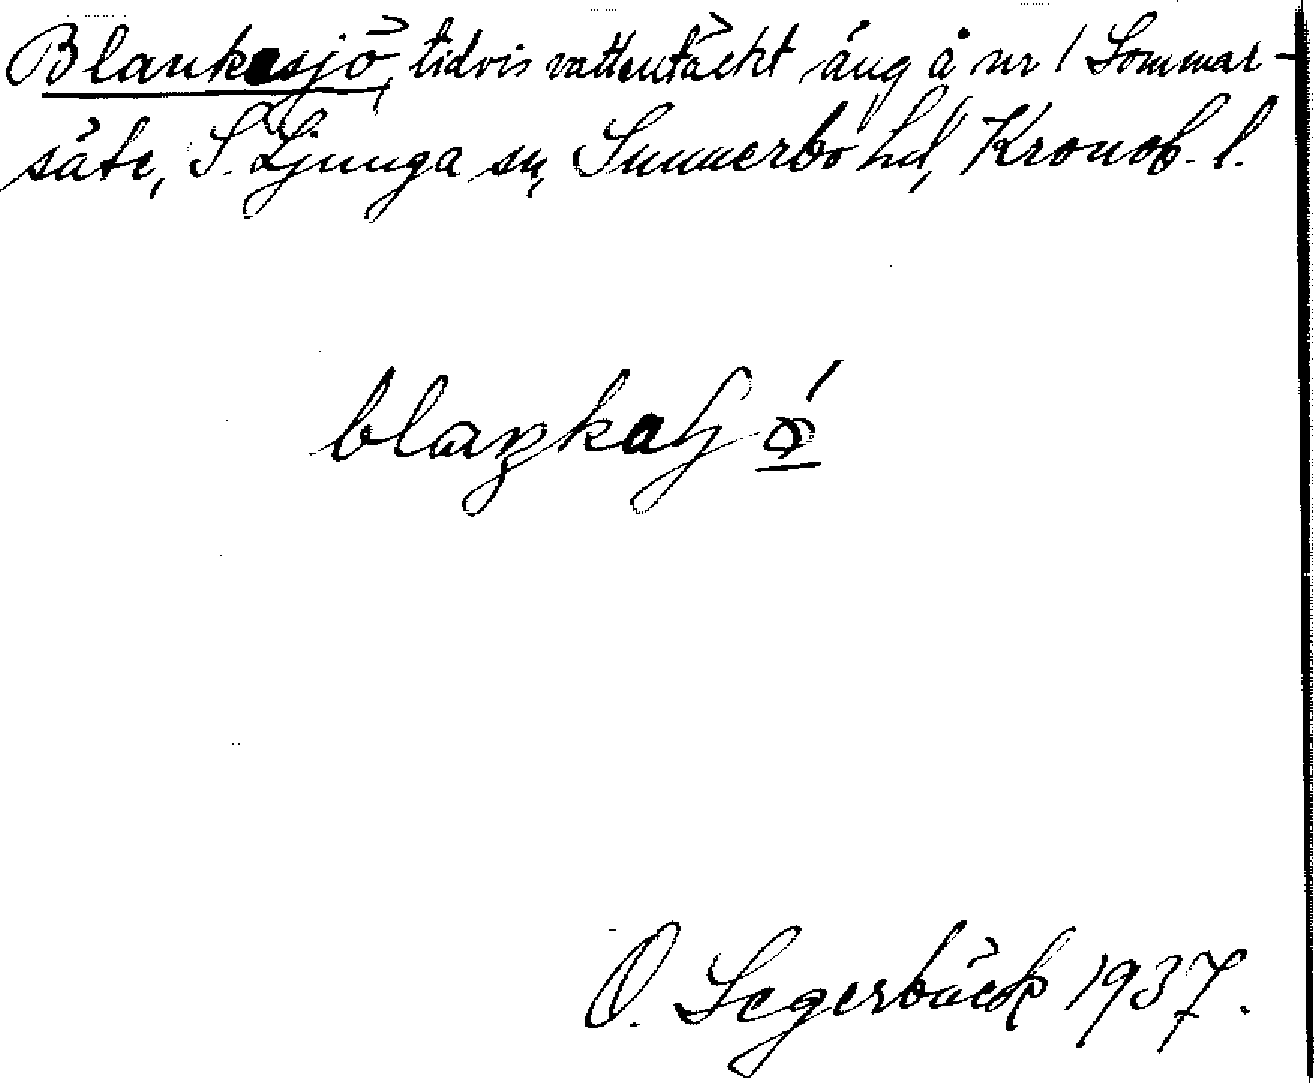 Blankasjö, tidvis vattentäckt äng å nr 1 Sommar-
säte, S. Ljunga sn, Sunnerbo hd, Kronob. l.
O. Segerbäck 1937.